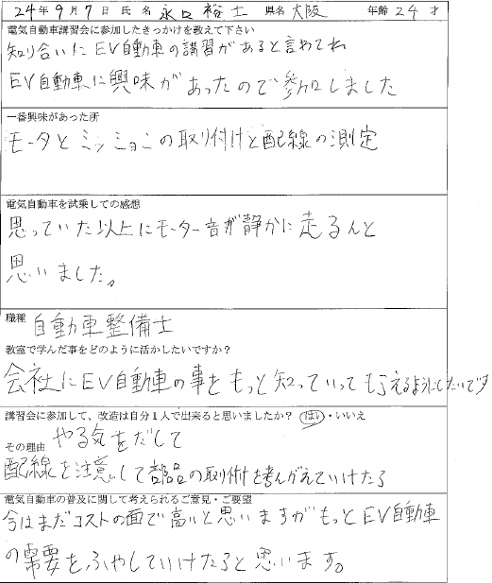 24年 9月 7日 氏名 永口 裕士 県名 大阪 年齢 24 才
電気自動車講習会に参加したきっかけを教えて下さい
知り合いにEV自動車の講習があると言めてれ
EV自動車に興味があったので参加しました
一番興味があった所
モータとミッションの取り付けと配線の測定
電気自動車を試乗しての感想
思っていた以上にモーター音が静かに走るんと
思いました。
職種 自動車整備士
教室で学んだ事をどのように活かしたいですか？
会社にEV自動車の事をもっと知っていってもらえるようにしたいです
講習会に参加して、改造は自分1人で出来ると思いましたか？ はい・いいえ
その理由 やる気をだして
配線を注意して部品の取付を考んがえていけたる
電気自動車の普及に関して考えられるご意見・ご要望
今はまだコストの面で高いと思いますがもっとEV自動車
の需要をふやしていけたらと思います。